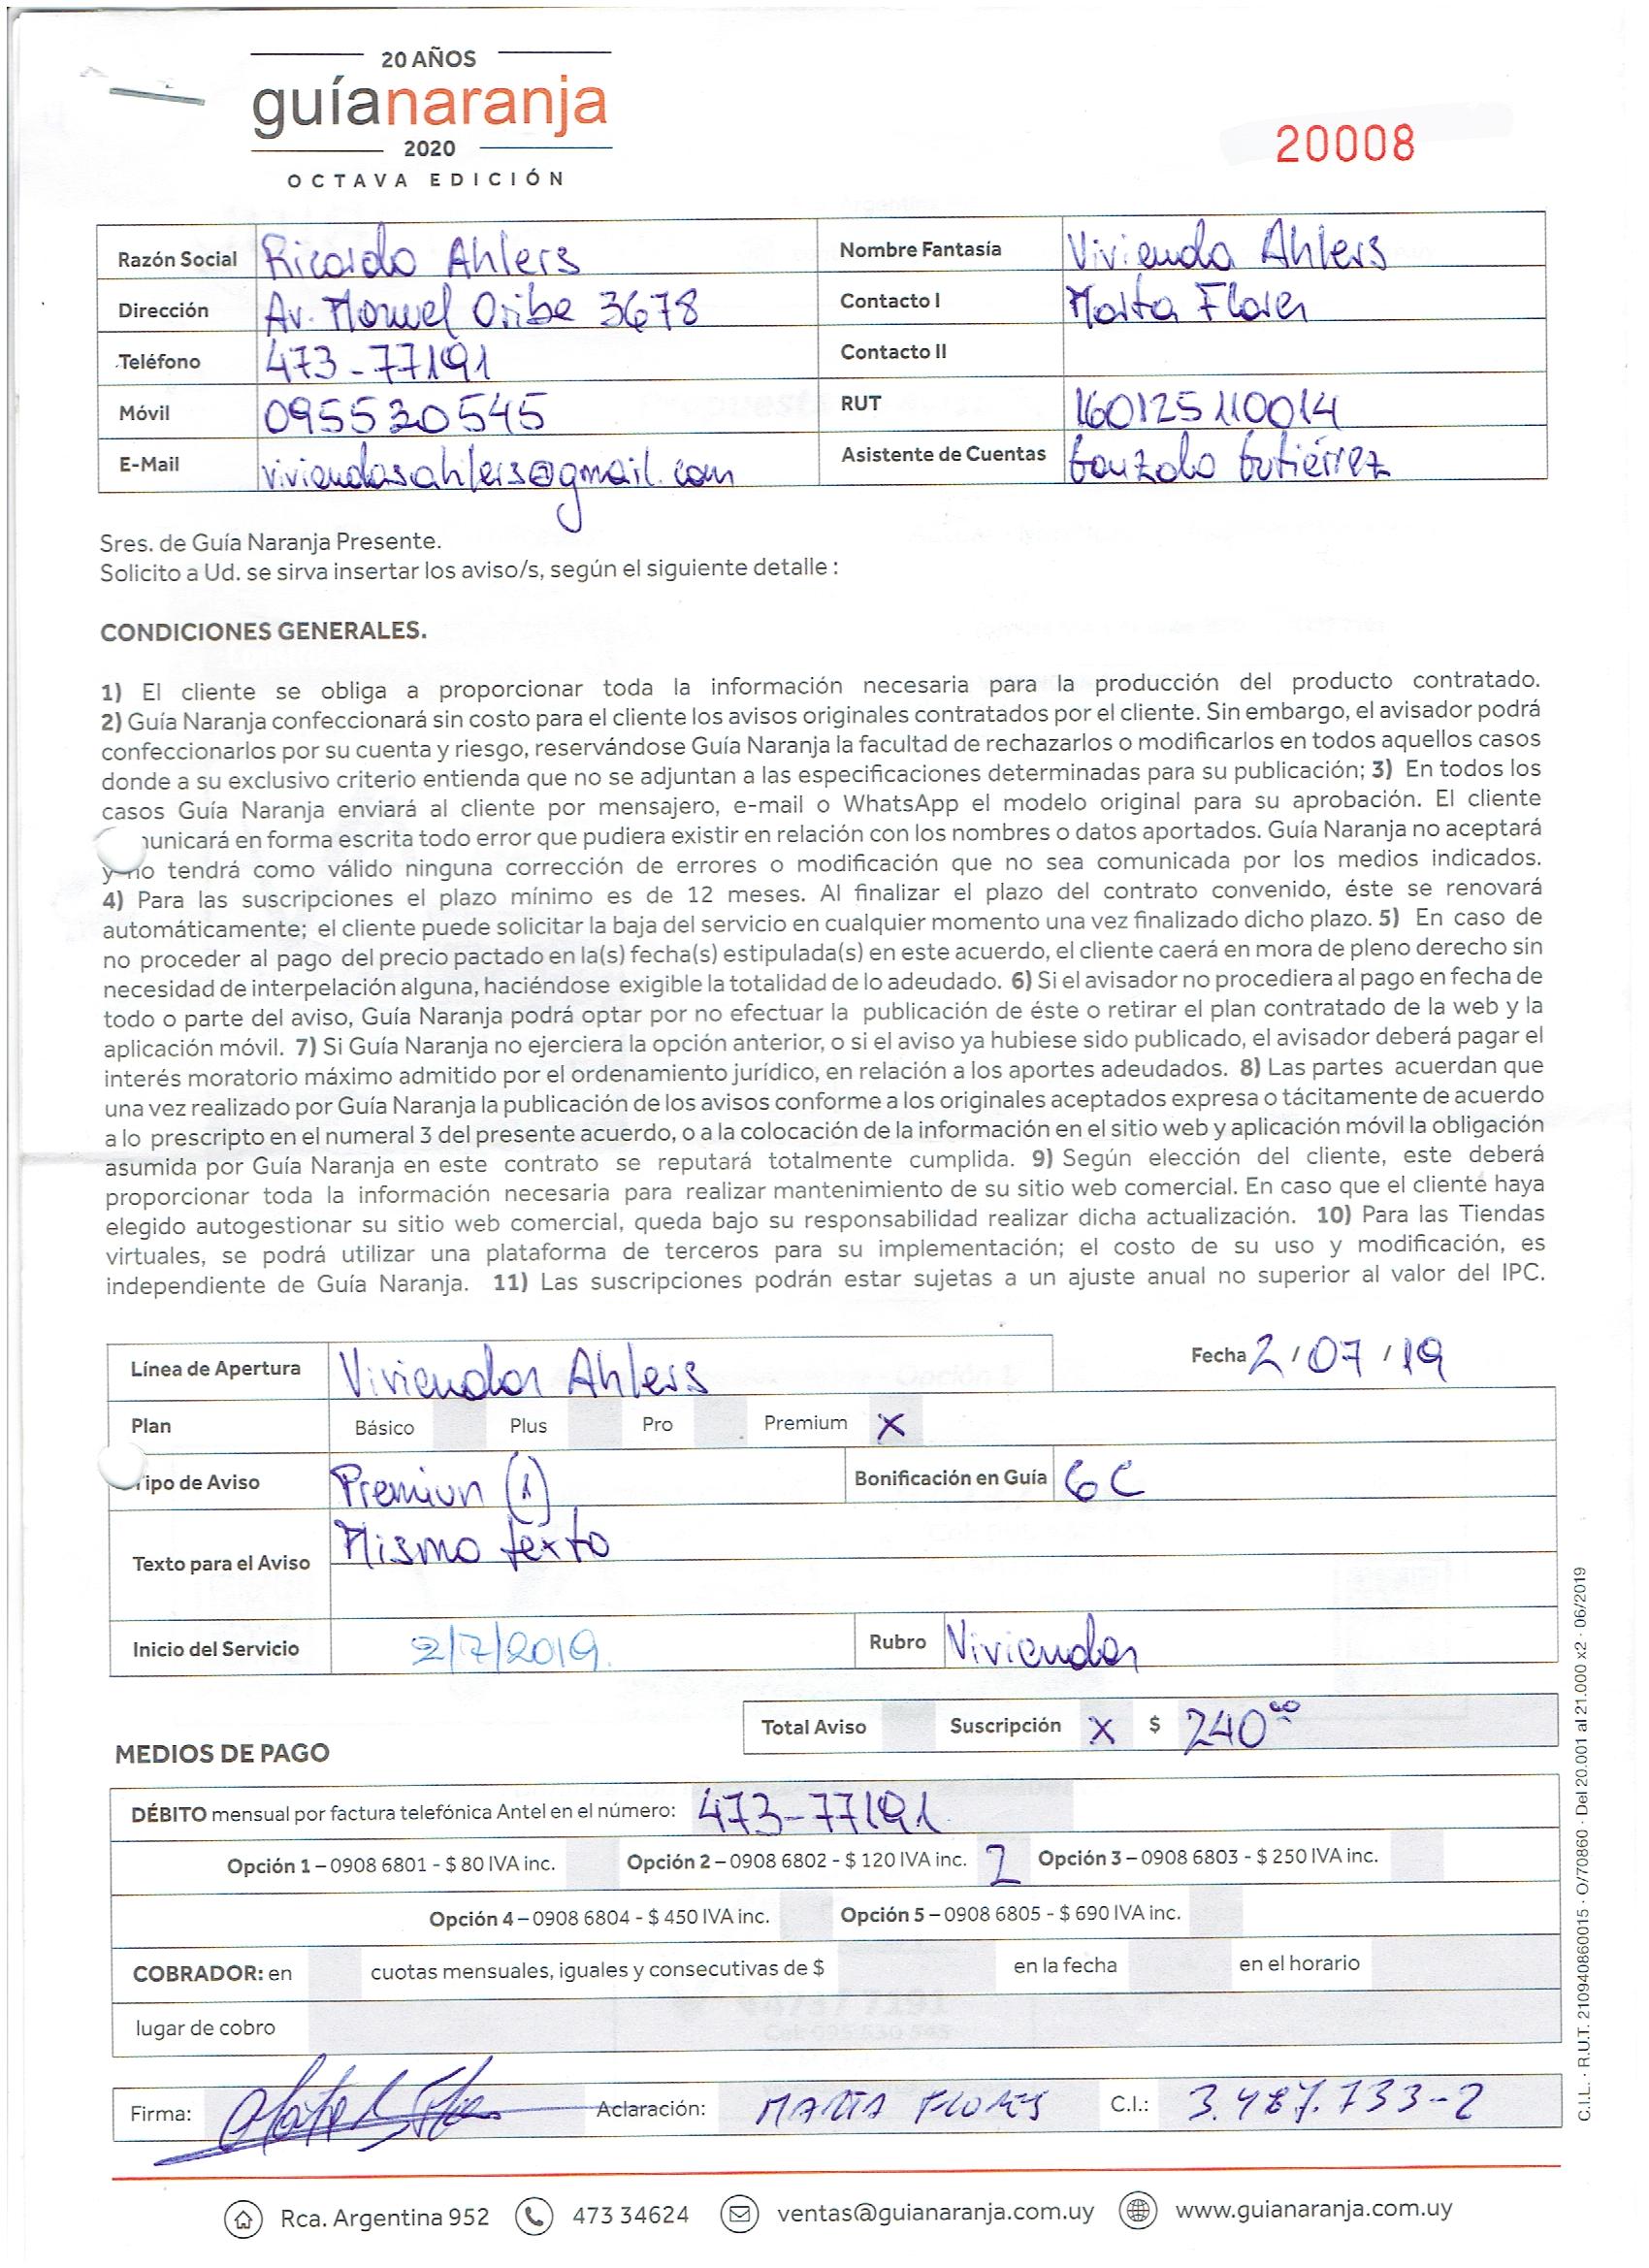 20 AÑOS
guíanaranja
2020
OCTAVA EDICIÓN
20008
Razón Social Ricardo Ahlers Nombre Fantasía Vivienda Ahlers
Dirección Av. Manuel Oribe 3678 Contacto I Marta Flores
Teléfono 473-77191 Contacto II
Móvil 095530545 RUT 160125110014
E-Mail viviendasahlers@gmail.com Asistente de Cuentas Gonzalo Gutiérrez
Sres. de Guía Naranja Presente.
Solicito a Ud. se sirva insertar los aviso/s, según el siguiente detalle :
CONDICIONES GENERALES.
1) El cliente se obliga a proporcionar toda la información necesaria para la producción del producto contratado.
2) Guía Naranja confeccionará sin costo para el cliente los avisos originales contratados por el cliente. Sin embargo, el avisador podrá
confeccionarlos por su cuenta y riesgo, reservándose Guía Naranja la facultad de rechazarlos o modificarlos en todos aquellos casos
donde a su exclusivo criterio entienda que no se adjuntan a las especificaciones determinadas para su publicación; 3) En todos los
casos Guía Naranja enviará al cliente por mensajero, e-mail o WhatsApp el modelo original para su aprobación. El cliente
unicará en forma escrita todo error que pudiera existir en relación con los nombres o datos aportados. Guía Naranja no aceptará
y no tendrá como válido ninguna corrección de errores o modificación que no sea comunicada por los medios indicados.
4) Para las suscripciones el plazo mínimo es de 12 meses. Al finalizar el plazo del contrato convenido, éste se renovará
automáticamente; el cliente puede solicitar la baja del servicio en cualquier momento una vez finalizado dicho plazo. 5) En caso de
no proceder al pago del precio pactado en la(s) fecha(s) estipulada(s) en este acuerdo, el cliente caerá en mora de pleno derecho sin
necesidad de interpelación alguna, haciéndose exigible la totalidad de lo adeudado. 6) Si el avisador no procediera al pago en fecha de
todo o parte del aviso, Guía Naranja podrá optar por no efectuar la publicación de éste o retirar el plan contratado de la web y la
aplicación móvil. 7) Si Guía Naranja no ejerciera la opción anterior, o si el aviso ya hubiese sido publicado, el avisador deberá pagar el
interés moratorio máximo admitido por el ordenamiento jurídico, en relación a los aportes adeudados. 8) Las partes acuerdan que
una vez realizado por Guía Naranja la publicación de los avisos conforme a los originales aceptados expresa o tácitamente de acuerdo
a lo prescripto en el numeral 3 del presente acuerdo, o a la colocación de la información en el sitio web y aplicación móvil la obligación
asumida por Guía Naranja en este contrato se reputará totalmente cumplida. 9) Según elección del cliente, este deberá
proporcionar toda la información necesaria para realizar mantenimiento de su sitio web comercial. En caso que el cliente haya
elegido autogestionar su sitio web comercial, queda bajo su responsabilidad realizar dicha actualización. 10) Para las Tiendas
virtuales, se podrá utilizar una plataforma de terceros para su implementación; el costo de su uso y modificación, es
independiente de Guía Naranja. 11) Las suscripciones podrán estar sujetas a un ajuste anual no superior al valor del IPC.
Línea de Apertura Viviendas Ahlers Fecha 2/07/19
Plan Básico Plus Pro Premium X
Tipo de Aviso Premiun (1) Bonificación en Guía 6C
Texto para el Aviso Mismo texto
Inicio del Servicio 2/7/2019. Rubro Viviendas
Total Aviso Suscripción X $ 240⁰⁰
MEDIOS DE PAGO
DÉBITO mensual por factura telefónica Antel en el número: 473-77191
Opción 1 – 0908 6801 - $ 80 IVA inc. Opción 2 – 0908 6802 - $ 120 IVA inc. 2 Opción 3 – 0908 6803 - $ 250 IVA inc.
Opción 4 – 0908 6804 - $ 450 IVA inc. Opción 5 – 0908 6805 - $ 690 IVA inc.
COBRADOR: en cuotas mensuales, iguales y consecutivas de $ en la fecha en el horario
lugar de cobro
Firma: Aclaración: MARTA FLORES C.I.: 3.487.733-2
C.I.L. · R.U.T. 210940860015 · O/70860 · Del 20.001 al 21.000 x2 · 06/2019
Rca. Argentina 952 473 34624 ventas@guianaranja.com.uy www.guianaranja.com.uy